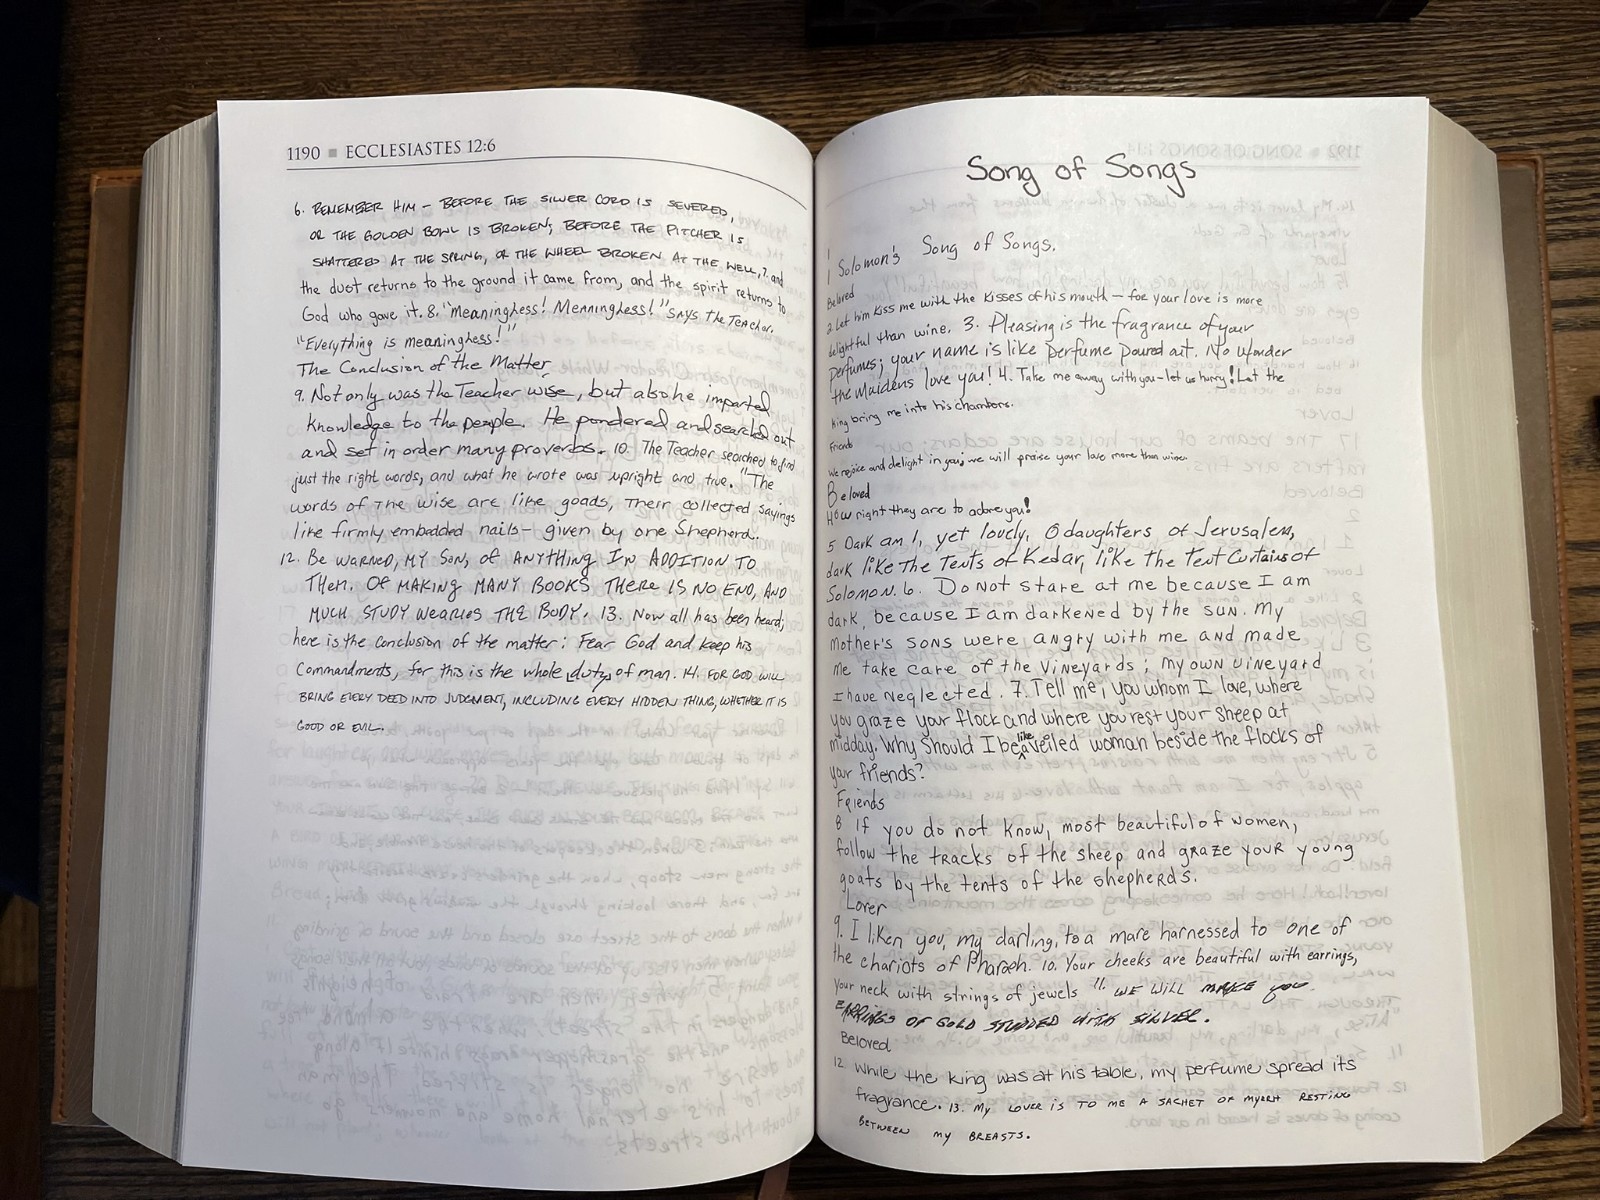 1190 ■ ECCLESIASTES 12:6
6. REMEMBER HIM – BEFORE THE SILVER CORD IS SEVERED,
OR THE GOLDEN BOWL IS BROKEN; BEFORE THE PITCHER IS
SHATTERED AT THE SPRING, OR THE WHEEL BROKEN AT THE WELL, 7. and
the dust returns to the ground it came from, and the spirit returns to
God who gave it. 8. "Meaningless! Meaningless!" says the Teacher.
"Everything is meaningless!"
The Conclusion of the Matter
9. Not only was the Teacher wise, but also he imparted
knowledge to the people. He pondered and searched out
and set in order many proverbs. 10. The Teacher searched to find
just the right words, and what he wrote was upright and true. "The
words of the wise are like goads, their collected sayings
like firmly embedded nails – given by one Shepherd.
12. BE WARNED, MY SON, OF ANYTHING IN ADDITION TO
THEM. OF MAKING MANY BOOKS THERE IS NO END, AND
MUCH STUDY WEARIES THE BODY. 13. Now all has been heard;
here is the conclusion of the matter: Fear God and keep his
Commandments, for this is the whole duty of man. 14. FOR GOD WILL
BRING EVERY DEED INTO JUDGMENT, INCLUDING EVERY HIDDEN THING, WHETHER IT IS
GOOD OR EVIL.
Song of Songs
1
1 Solomon's Song of Songs.
Beloved
2 Let him kiss me with the kisses of his mouth – for your love is more
delightful than wine. 3. Pleasing is the fragrance of your
perfumes; your name is like perfume poured out. No wonder
the maidens love you! 4. Take me away with you – let us hurry! Let the
King bring me into his chambers.
Friends
We rejoice and delight in you; we will praise your love more than wine.
Beloved
How right they are to adore you!
5 Dark am I, yet lovely, O daughters of Jerusalem,
dark like the tents of Kedar, like the tent curtains of
Solomon. 6. Do not stare at me because I am
dark, because I am darkened by the sun. My
Mother's sons were angry with me and made
me take care of the vineyards; my own vineyard
I have neglected. 7. Tell me, you whom I love, where
you graze your flock and where you rest your sheep at
midday. Why should I be like a veiled woman beside the flocks of
your friends?
Friends
8 If you do not know, most beautiful of women,
follow the tracks of the sheep and graze your young
goats by the tents of the shepherds.
Lover
9. I liken you, my darling, to a mare harnessed to one of
the chariots of Pharaoh. 10. Your cheeks are beautiful with earrings,
your neck with strings of jewels 11. WE WILL MAKE YOU
EARRINGS OF GOLD STUDDED WITH SILVER.
Beloved
12 While the king was at his table, my perfume spread its
fragrance. 13. MY LOVER IS TO ME A SACHET OF MYRRH RESTING
BETWEEN MY BREASTS.